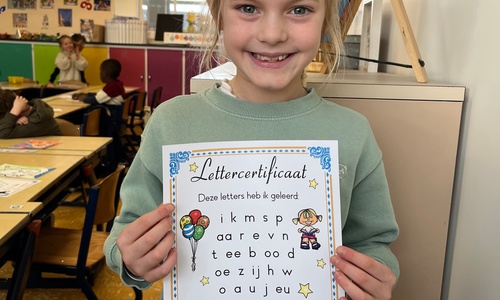 Lettercertificaat
Deze letters heb ik geleerd:
i k m s p
aa r e v n
t ee b oo d
oe z ij h w
o a u j eu